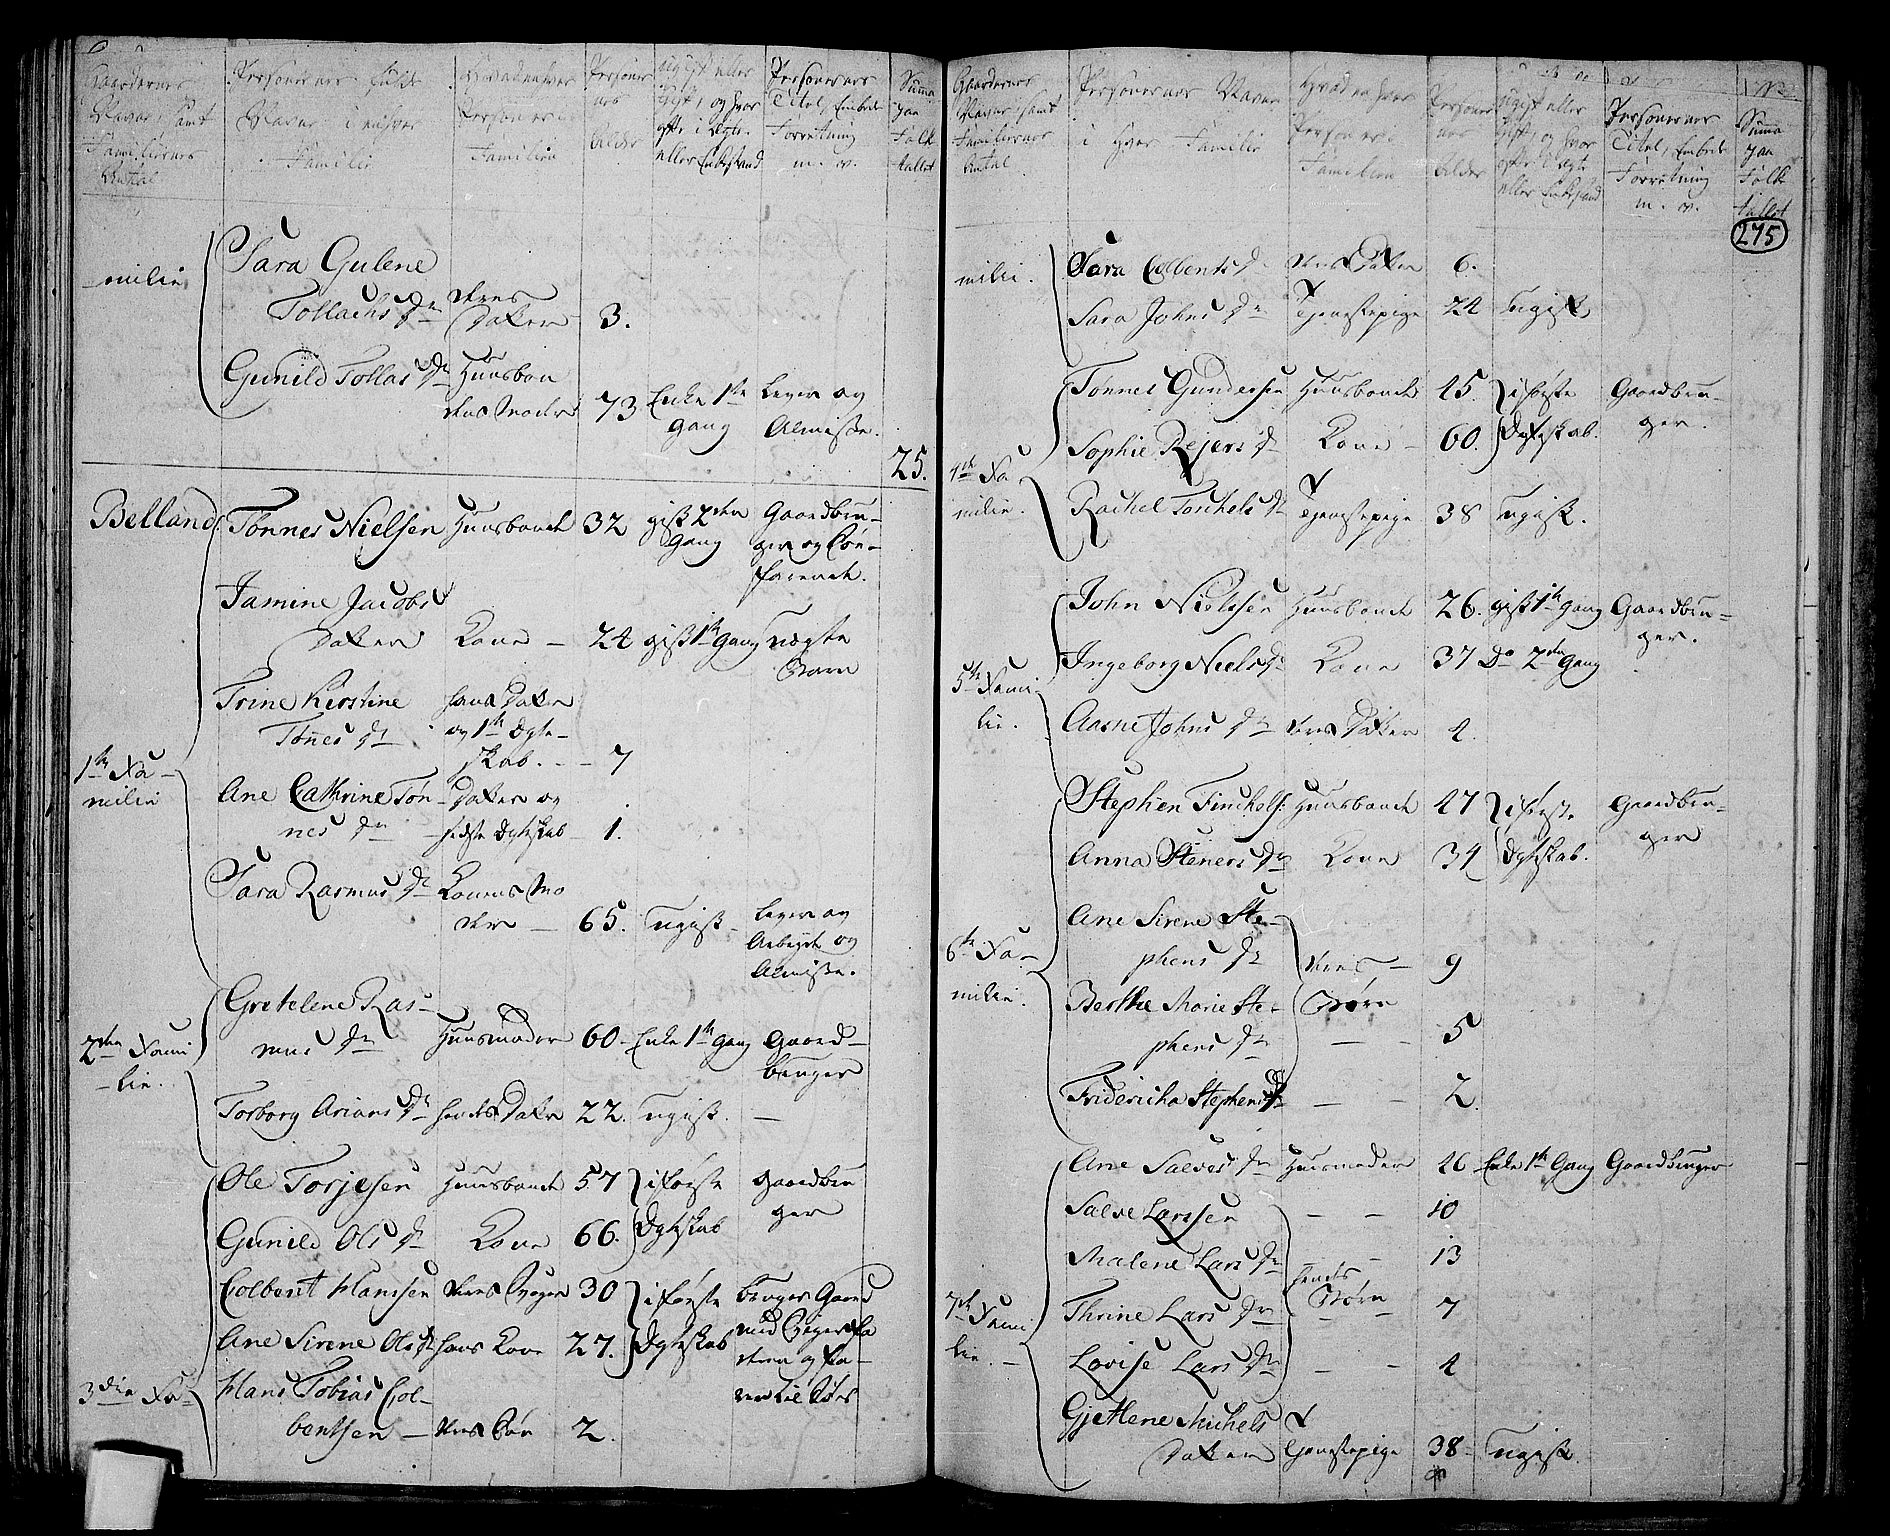 Gaardernes
Navne, samt
Familiernes
Antal
Personernes fulde
Navne i enhver
Familie
Hvad enhver
Person er i
Familien
Personer
nes
Alder
Ugift eller
Gift, og hvor
ofte i Ægte-
eller Enkestand
Personernes
Titel, Embede
Forretning
m. v.
Summa
paa
Folk
tallet
milie
Sara Gulene
Tollachs Dr
deres
Datter
3.
Gunild Tollas Dr
Huusbon
dens Moder
73
Enke 1te
Gang
Lever af
Almisse.
25.
Belland
Tønnes Nielsen Huusbonde 32 gift 2den
Gang
Gaardbru-
ger og Søe-
farende.
Jamine Jacobs
Datter Kone 24 gift 1te Gang
Trine Kirstine
Tønes Dr
hans Datter
og 1te Ægte-
skab. - 7
1te Fa-
milie
Ane Cathrine Tøn-
nes Dr
Datter af
sidste Ægteskab 1.
Sara Rasmus Dr
Konens Mo
der 65. Ugift
Lever af
Arbeyde og
Almisse.
2den Fami
lie.
Gretelene Ras-
mus Dr
Huusmoder 60 Enke 1te Gang
Gaard-
bruger
Torborg Arians Dr hendes Datter 22. Ugift.
Ole Torjesen Huusbonde 57 i første
Gunild Ols Dr Kone 66. Ægteskab
Gaardbru
ger
Colbent Hanssen deres Svoger 30 i første
Ane Sirene Ols Dr hans Kone 27. Ægteskab
bruger Gaard
med Sviger Fa
deren og fa-
rer til Søes
3die Fa-
Hans Tobias Col-
bentsen deres Søn 2.
Gaardernes
Navne, samt
Familiernes
Antal
Personernes Navne
i hver Familie
Hvad en hver
Person er i
Familien
Personer
nes
Alder
Ugift eller
Gift, og hvor
ofte i Ægte
eller Enkestand
Personernes
Titel, Embede
Forretning
m. v.
Summa
paa
Folk
tallet
275
milie.
Sara Colbents Dr deres Datter 6.
Sara Johns Dr Tjenestepige 24 Ugift
4de Fa
milie.
Tønnes Gundersen Huusbonde 45. i første
Gaardbru-
ger.
Sophie Rejers Dr Kone 60. Ægteskab.
Rachel Torkels Dr Tjenestepige 38 Ugift.
5te Fami
lie.
John Nielsen Huusbonde 26. gift 1te Gang
Gaardbru-
ger.
Ingeborg Niels Dr Kone 37 Do 2den Gang
Aasne Johns Dr deres Datter 4.
6te Fa-
milie.
Stephen Finckels: Huusbonde 47 i første
Gaardbru-
ger
Anna Steners Dr Kone 34 Ægteskab.
Ane Sirene Ste-
phens Dr
deres 9
Berthe Marie Ste-
phens Dr
Børn
5
Fridericha Stephens Dr 2.
7de Fami
lie.
Ane Salves Dr Huusmoder 46 Enke 1te Gang Gaardbruger
Salve Larssen 10
Malene Lars Dr 13
hendes
Børn
Thrine Lars Dr 7
Lovise Lars Dr 4
Gjetlene Michels
Datter
Tjenestepige 38 Ugift.